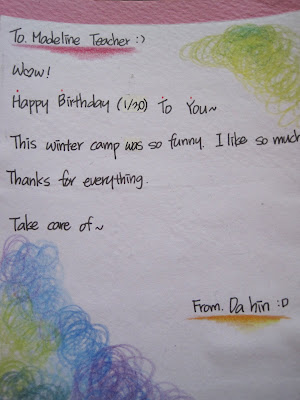 To. Madeline Teacher :)
Wow!
Happy Birthday (1/20) To You~
This winter camp was so funny. I like so much
Thanks for everything.
Take care of~
From. Da hin :D